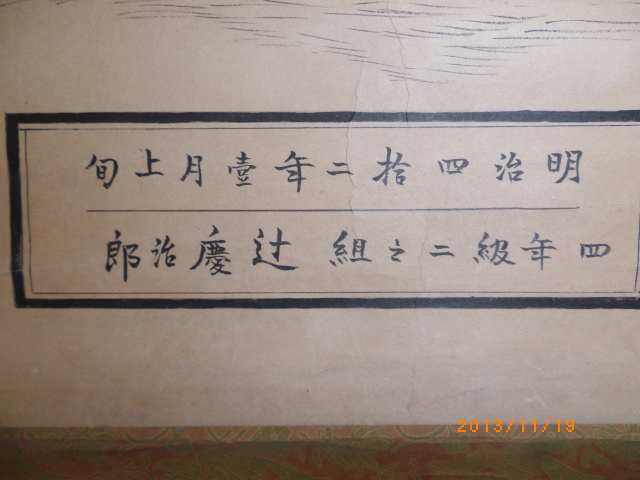 明治四拾二年壹月上旬
四年級二之組 辻慶治郎
2013/11/19